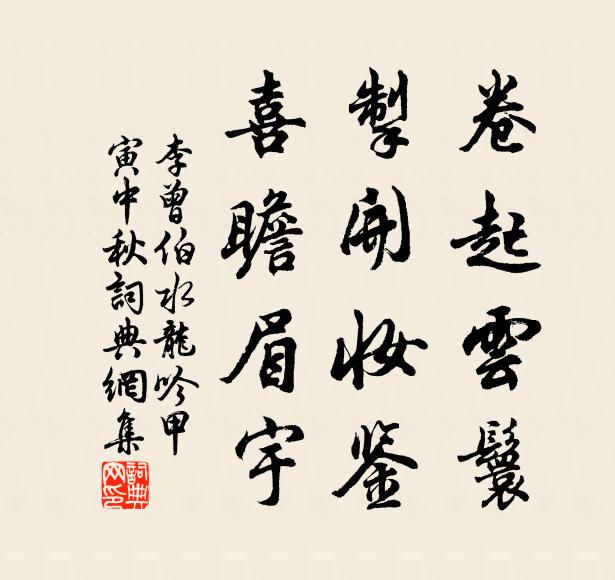 卷起雲鬟
掣開妝鑒
喜瞻眉宇
李曾伯水龍吟甲
寅中秋詞典網集
詞典网印